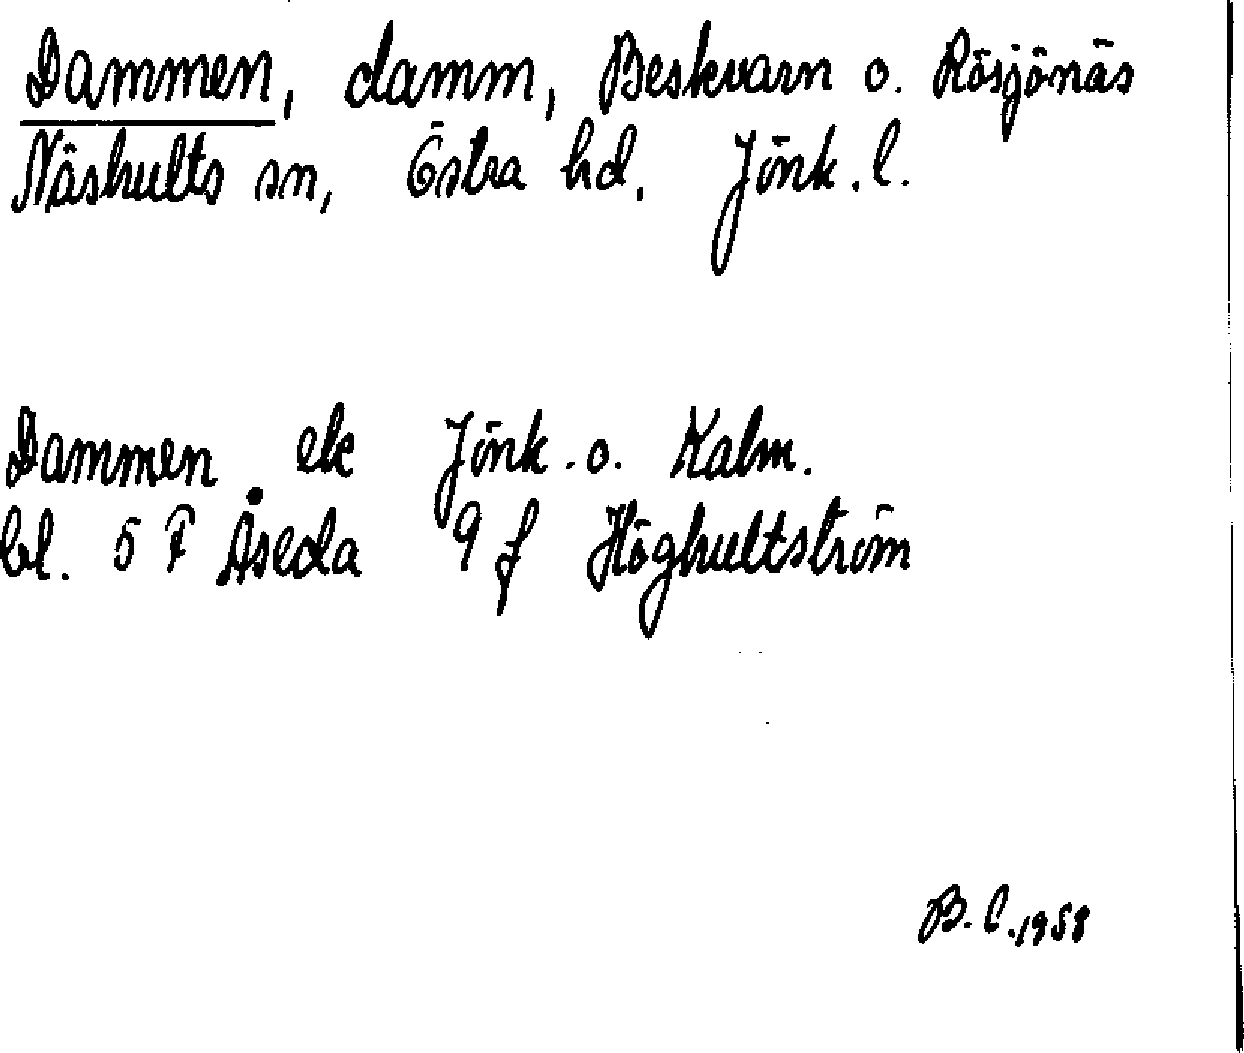 Dammen, damm, Beskvarn o. Rösjönäs
Näshults sn, Östra hd. Jönk. l.
Dammen ek Jönk. o. Kalm.
bl. 5 F Åseda 9 f Höghultström
B. C. 1958